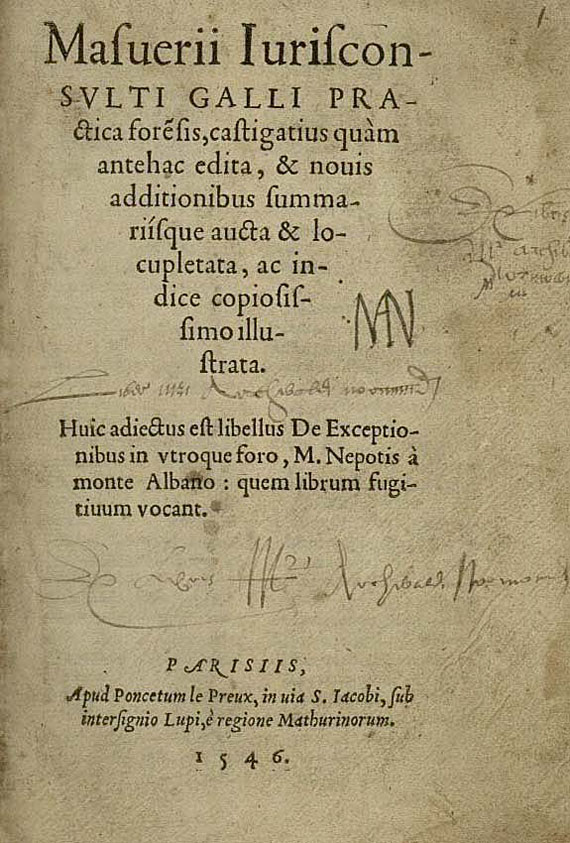 Maſuerii Iuriſcon-
SVLTI GALLI PRA-
ctica forẽſis, caſtigatius quàm
antehac edita, & nouis
additionibus ſumma-
riíſque aucta & lo-
cupletata, ac in-
dice copioſiſ-
ſimo illu-
ſtrata.
Liber Archibaldi
Huic adiectus eſt libellus De Exceptio-
nibus in vtroque foro, M. Nepotis à
monte Albano : quem librum fugi-
tiuum vocant.
Archibaldi
PARISIIS,
Apud Poncetum le Preux, in uia S. Iacobi, ſub
interſignio Lupi, è regione Mathurinorum.
1546.